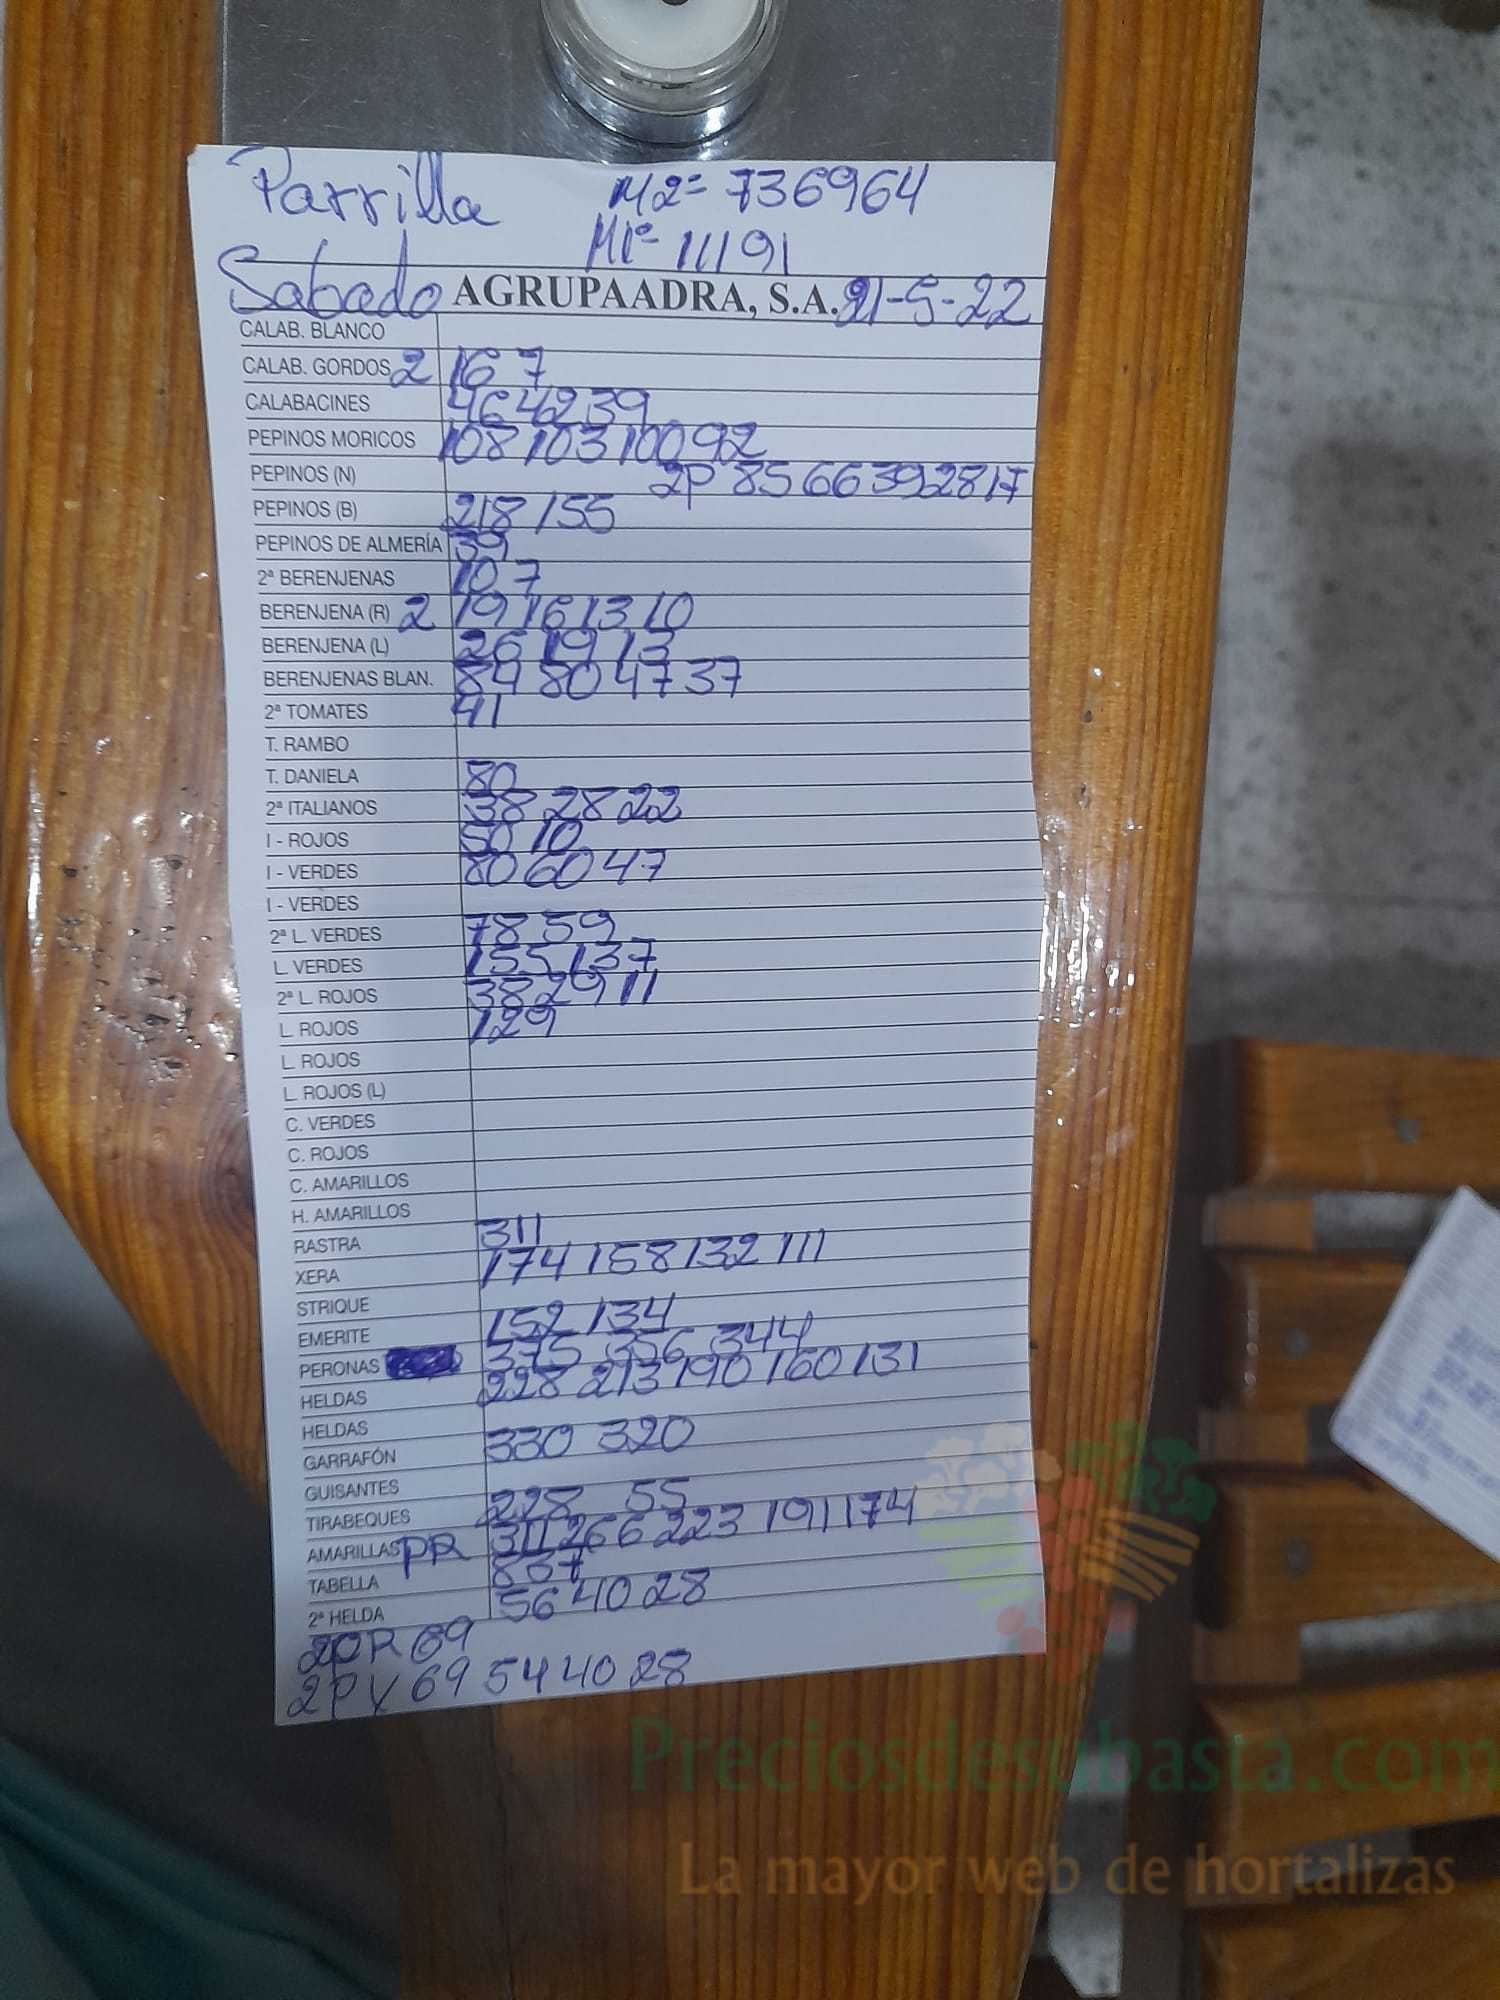 Parrilla M2= 736964
M1= 11191
Sabado AGRUPAADRA, S.A. 21-5-22
CALAB. BLANCO
CALAB. GORDOS 2 16 7
CALABACINES 46 42 39
PEPINOS MORICOS 108 103 100 92
PEPINOS (N) 2P 85 66 39 28 17
PEPINOS (B) 218 155
PEPINOS DE ALMERÍA 39
2ª BERENJENAS 10 7
BERENJENA (R) 2 19 16 13 10
BERENJENA (L) 26 19 13
BERENJENAS BLAN. 89 80 47 37
2ª TOMATES 41
T. RAMBO
T. DANIELA 80
2ª ITALIANOS 38 28 22
I - ROJOS 50 10
I - VERDES 80 60 47
I - VERDES
2ª L. VERDES 78 59
L. VERDES 155 137
2ª L. ROJOS 38 29 11
L. ROJOS 129
L. ROJOS
L. ROJOS (L)
C. VERDES
C. ROJOS
C. AMARILLOS
H. AMARILLOS
RASTRA 311
XERA 174 158 132 111
STRIQUE
EMERITE 152 134
PERONAS 375 356 344
HELDAS 228 213 190 160 131
HELDAS
GARRAFÓN 330 320
GUISANTES
TIRABEQUES 228 55
AMARILLAS PR 311 266 223 191 174
TABELLA 887
2ª HELDA 56 40 28
2PR 69
2PV 69 54 40 28
Preciosdesubasta.com
La mayor web de hortalizas